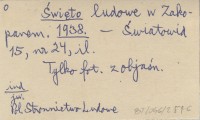 Święto ludowe w Zako-
panem. 1938. – Światowid
15, nr 24, il.
Tylko fot. z objaśn.
ind
Pol. Stronnictwo Ludowe